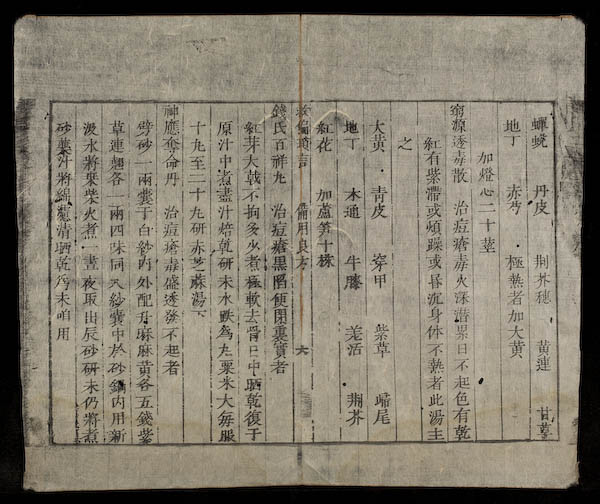 蟬蛻 丹皮 荆芥穗 黄連 甘草
地丁 赤芍 極熱者加大黄
加燈心二十莖
窮源透毒散 治痘瘡毒火深潛累日不起色有乾
紅有紫滯或煩躁或昏沉身体不熱者此湯主
之
大黄 青皮 穿甲 紫草 歸尾
地丁 木通 牛膝 羗活 荆芥
紅花 加蘆笋十株
救偏瑣言 備用良方 六
錢氏百祥丸 治痘瘡黒陷便閉裏實者
紅芽大戟不拘多少煮極軟去骨日中晒乾復于
原汁中煮盡汁焙乾研末水跌為丸粟米大每服
十九至二十九研赤芝蔴湯下
神應奪命丹 治痘瘡毒盛透發不起者
劈砂一兩嚢于白紗内外配升麻麻黄各五錢紫
草連翹各一兩四味同入紗嚢中於砂鍋内用新
汲水將桒柴火煮一晝夜取出辰砂研末仍將煮
砂藥汁將綿濾清晒乾乃末咱用